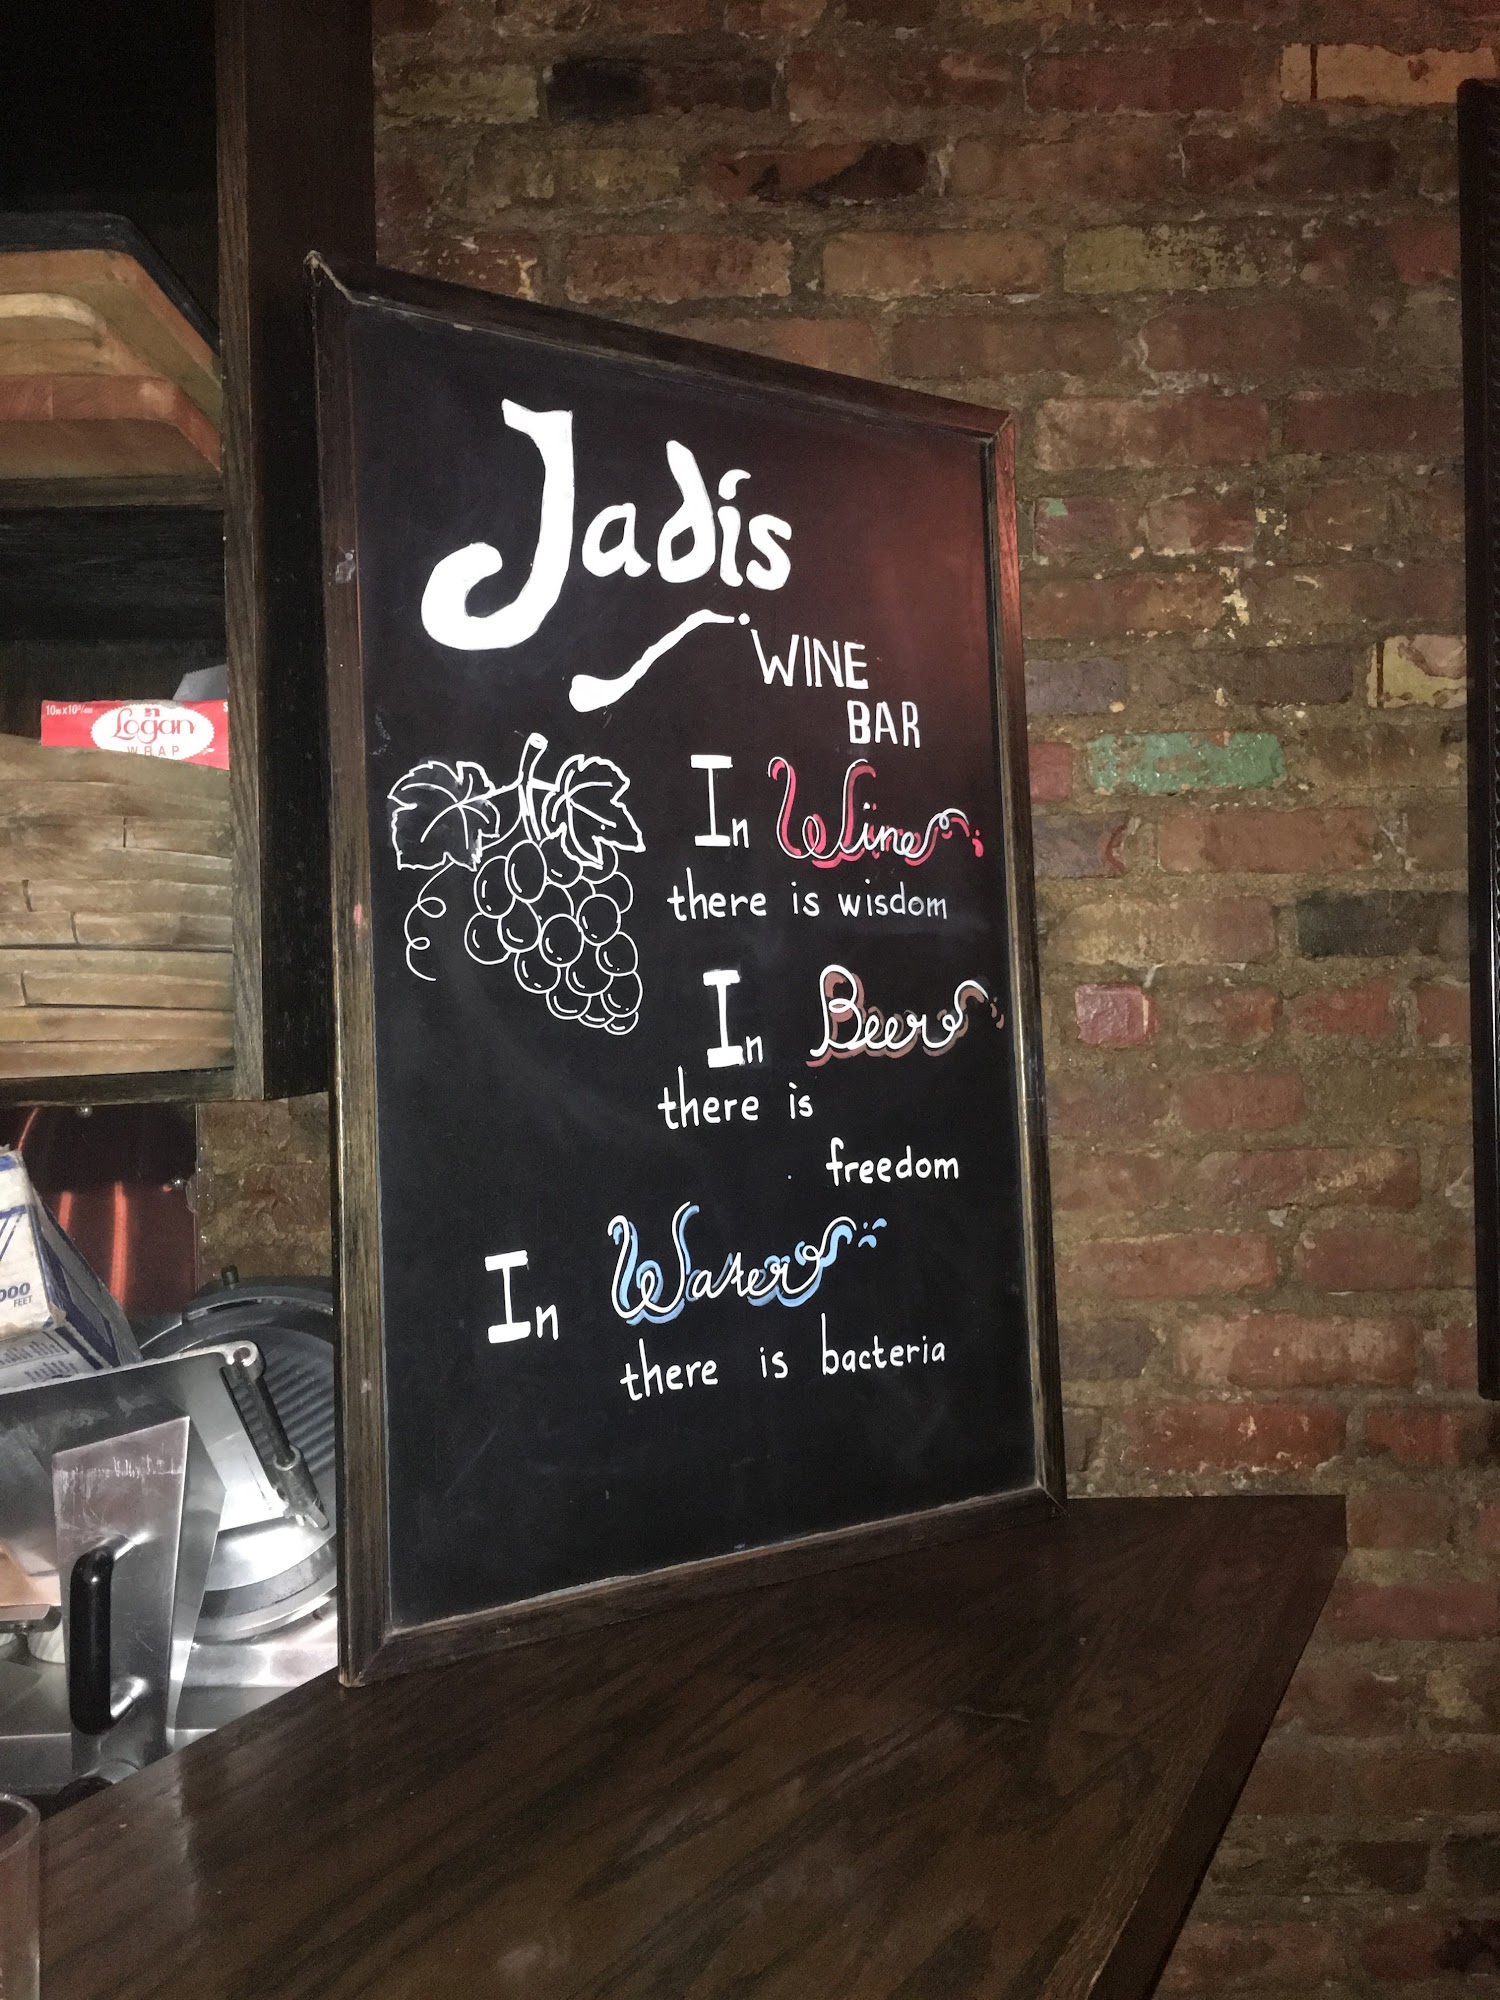 Jadis
WINE
BAR
In Wine
there is wisdom
In Beer
there is
freedom
In Water
there is bacteria
10m x 10³/₄in
Logan
WRAP
000
FEET